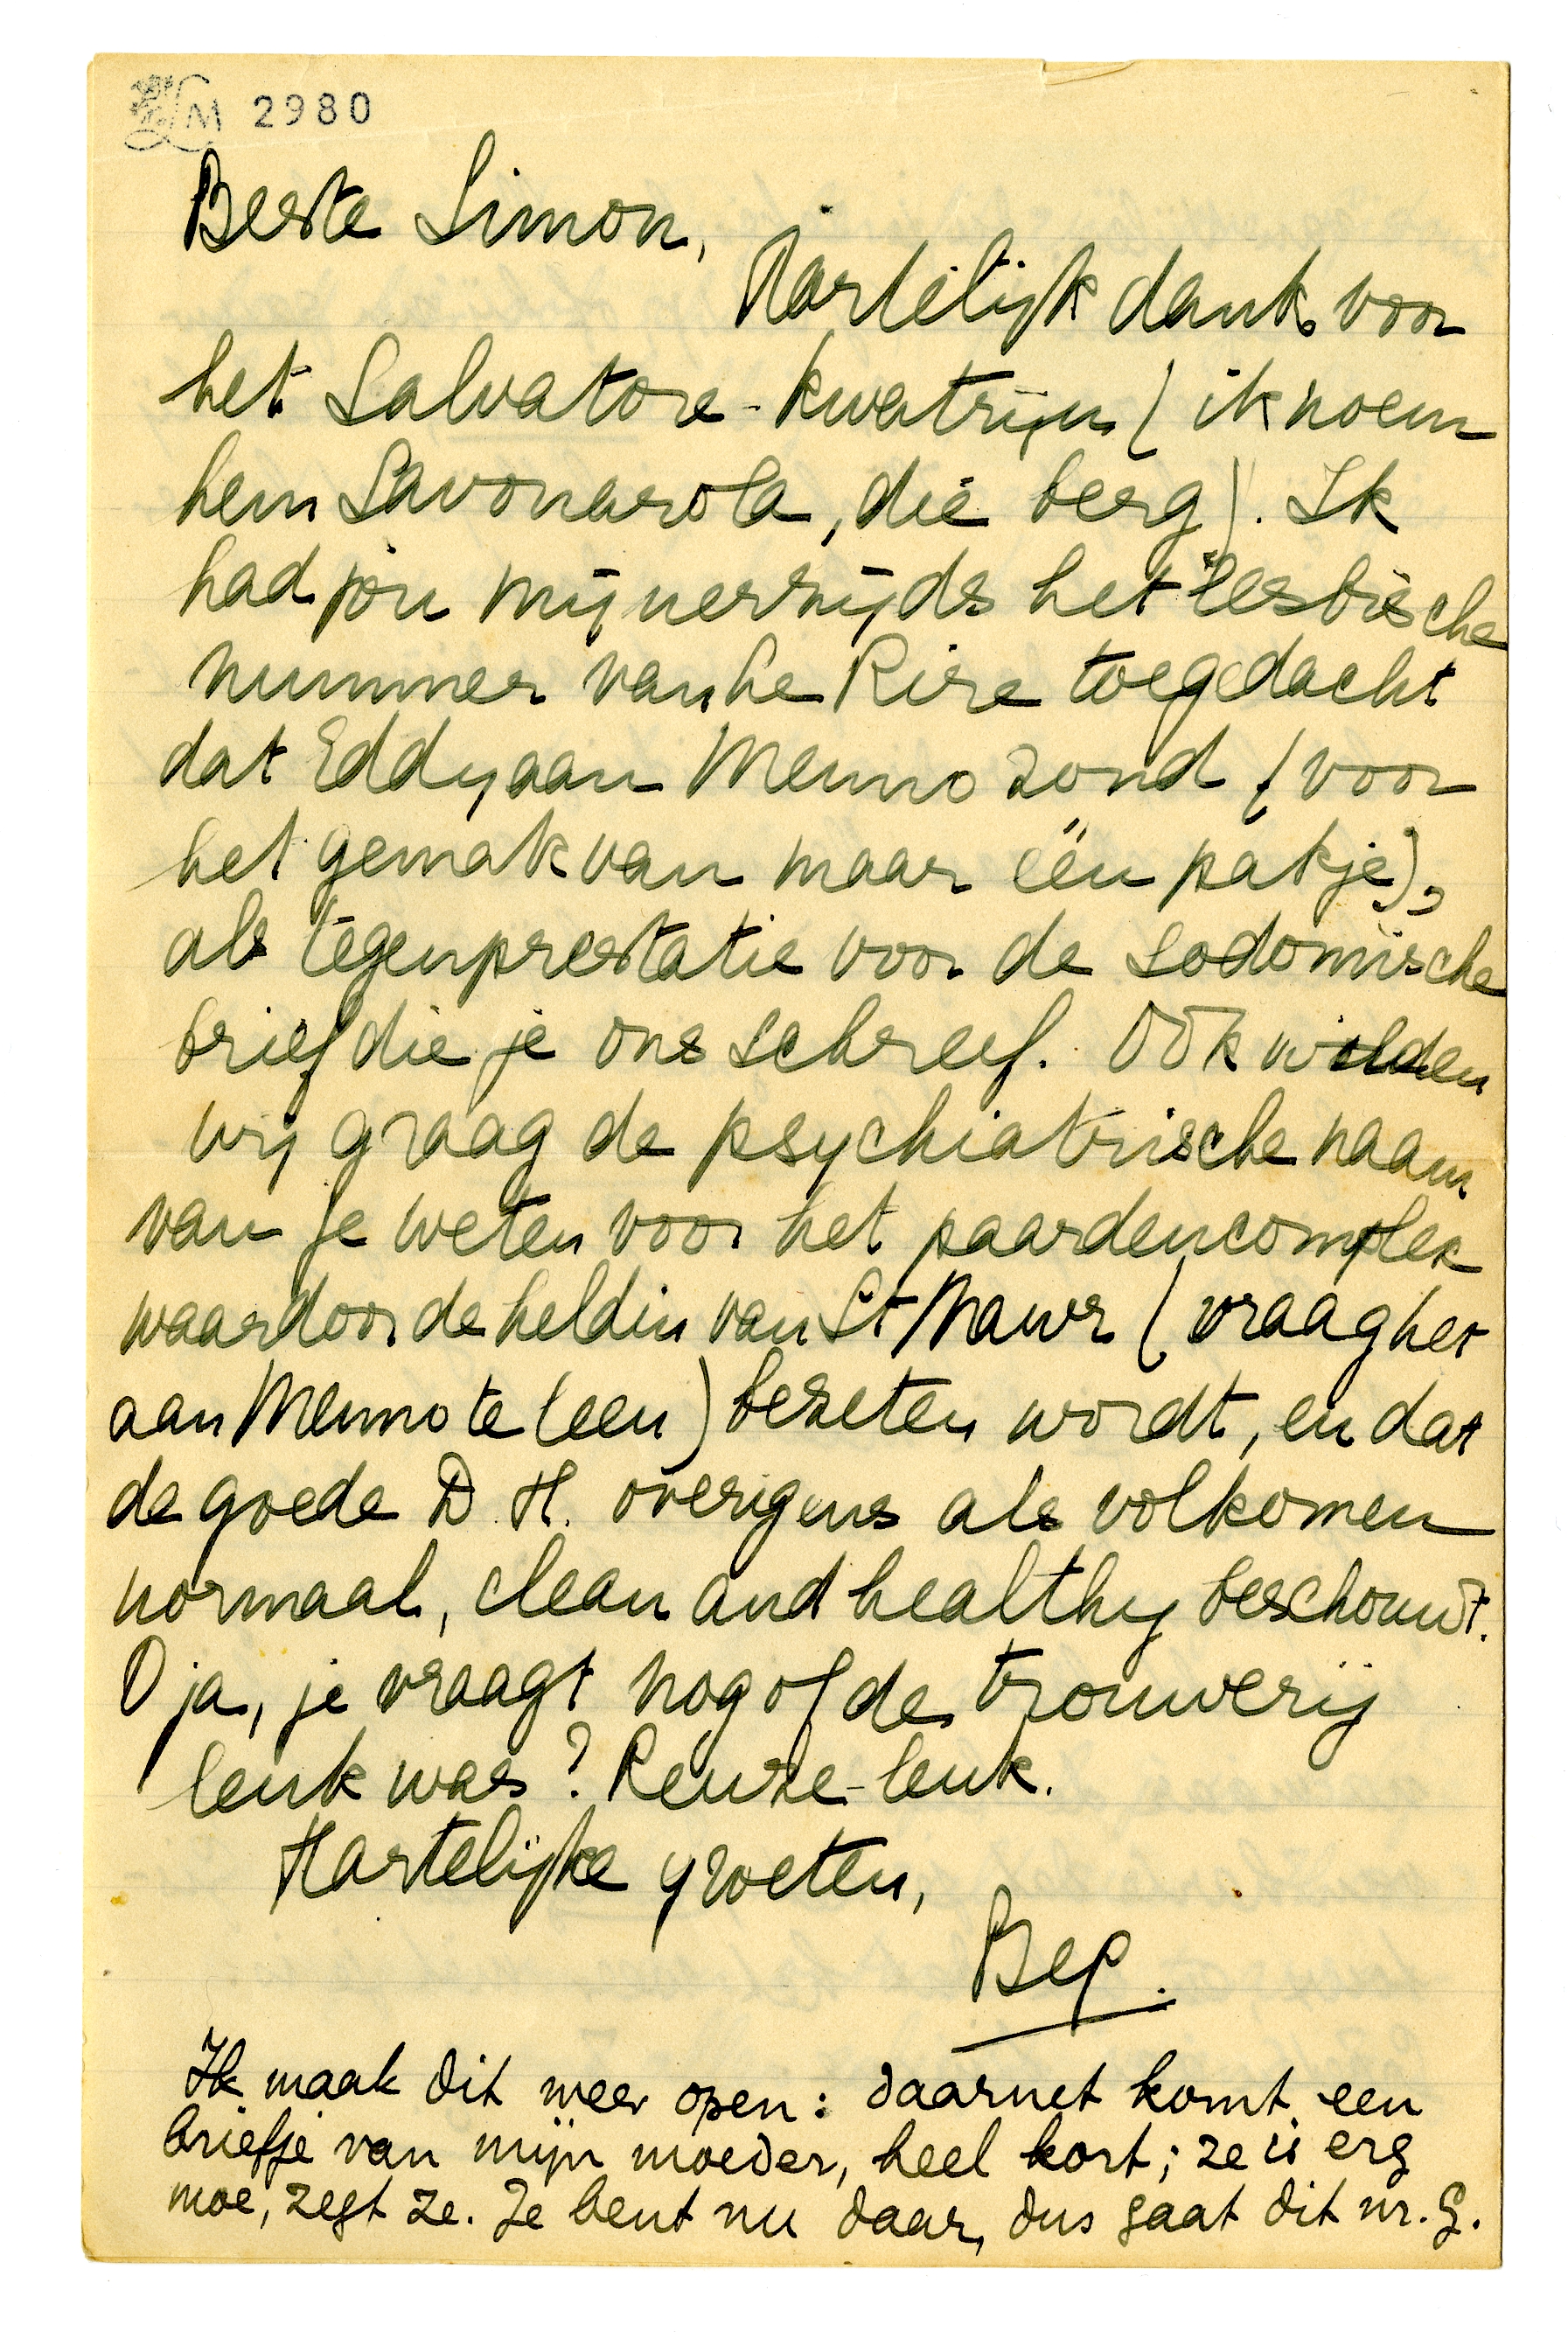 LM 2980
Beste Simon,
Hartelijk dank voor
het Salvatore-kwatrijn (ik noem
hem Savonarola, die berg). Ik
had jou mijnerzijds het lesbische
nummer van Le Rire toegedacht
dat Eddy aan Menno zond (voor
het gemak van maar één pakje),
als tegenprestatie voor de sodomische
brief die je ons schreef. Ook wilden
wij graag de psychiatrische naam
van je weten voor het paardencomplex
waardoor de heldin van St Mawr (vraag het
aan Menno te leen) bezeten wordt, en dat
de goede D. H. overigens als volkomen
normaal, clean and healthy beschouwt.
O ja, je vraagt nog of de trouwerij
leuk was? Reuze-leuk.
Hartelijke groeten,
Bep.
Ik maak dit weer open: daarnet komt een
briefje van mijn moeder, heel kort; ze is erg
moe, zegt ze. Je bent nu daar, dus gaat dit nr. G.